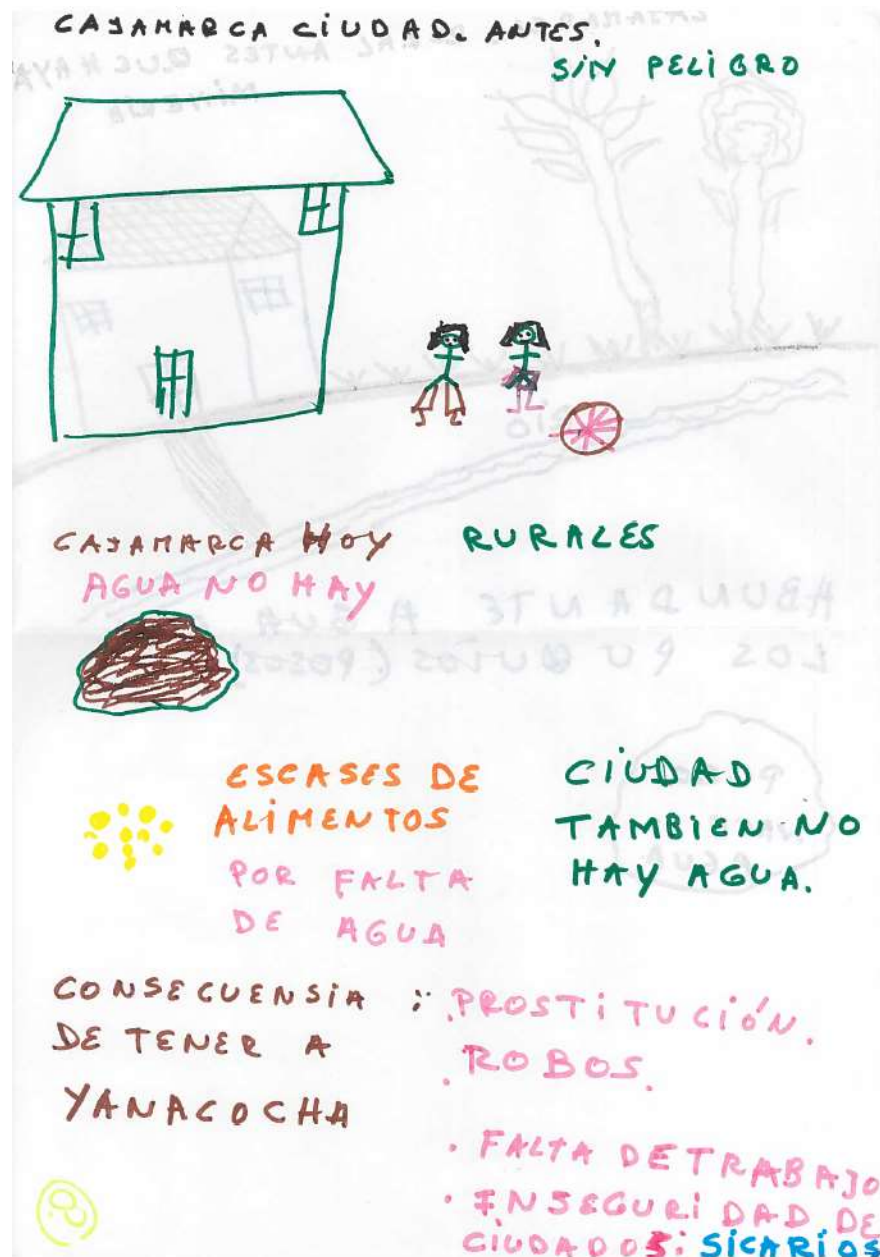 CAJAMARCA CIUDAD. ANTES.
SIN PELIGRO
CAJAMARCA HOY RURALES
AGUA NO HAY
ESCASES DE
ALIMENTOS
POR FALTA
DE AGUA
CIUDAD
TAMBIEN NO
HAY AGUA.
CONSECUENSIA :
DE TENER A
YANACOCHA
. PROSTITUCIÓN.
. ROBOS.
. FALTA DE TRABAJO
. INSEGURIDAD DE
CIUDADOS: SICARIOS